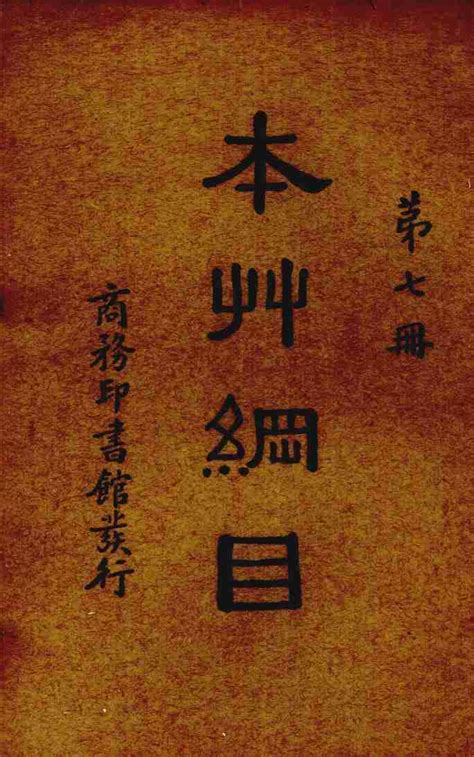 第七冊
本艸綱目
商務印書館發行